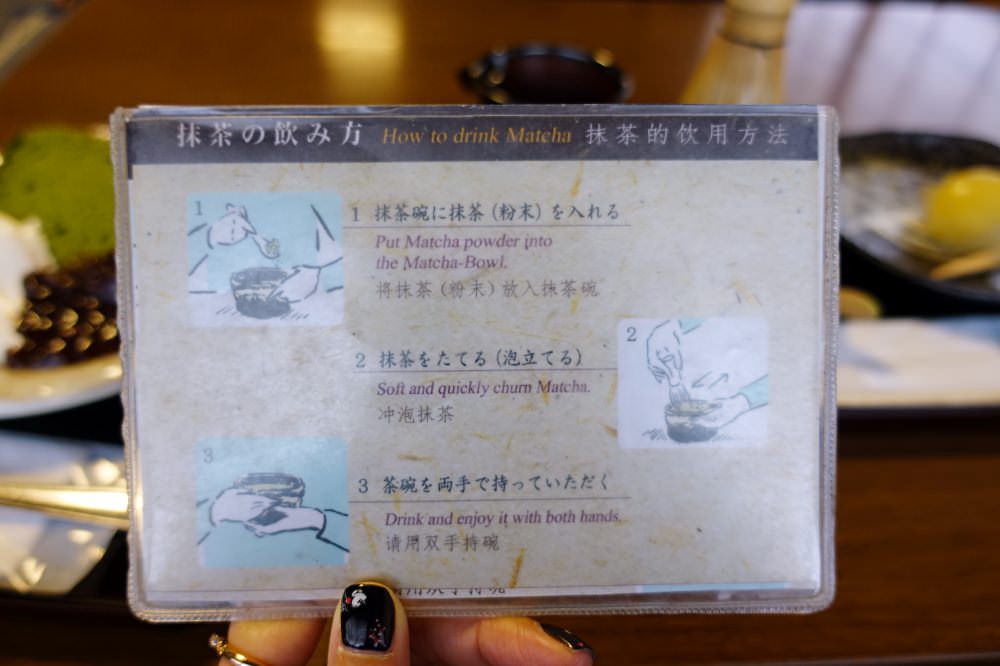 抹茶の飲み方 How to drink Matcha 抹茶的饮用方法
1
1 抹茶碗に抹茶（粉末）を入れる
Put Matcha powder into
the Matcha-Bowl.
将抹茶（粉末）放入抹茶碗
2
2 抹茶をたてる（泡立てる）
Soft and quickly churn Matcha.
冲泡抹茶
3
3 茶碗を両手で持っていただく
Drink and enjoy it with both hands.
请用双手持碗